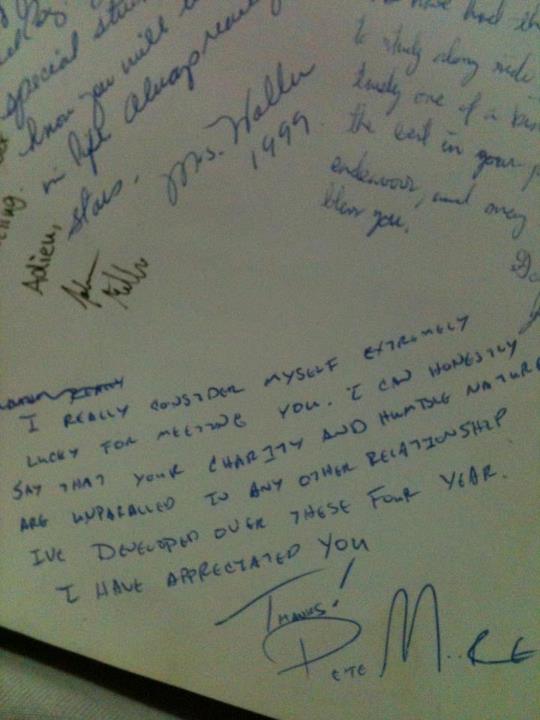 special
know you will
in life Always
stars.
Mrs. Waller
1999
Adieu,
have had th
to study along side
truely one of a
the best in your p
endeavour, and may
bless you.
I REALLY CONSIDER MYSELF EXTREMELY
LUCKY FOR MEETING YOU. I CAN HONESTLY
SAY THAT YOUR CHARITY AND HUMBLE NATURE
ARE UNPARALLED IN ANY OTHER RELATIONSHIP
IVE DEVELOPED OVER THESE FOUR YEAR.
I HAVE APPRECIATED YOU
THANKS!
PETE